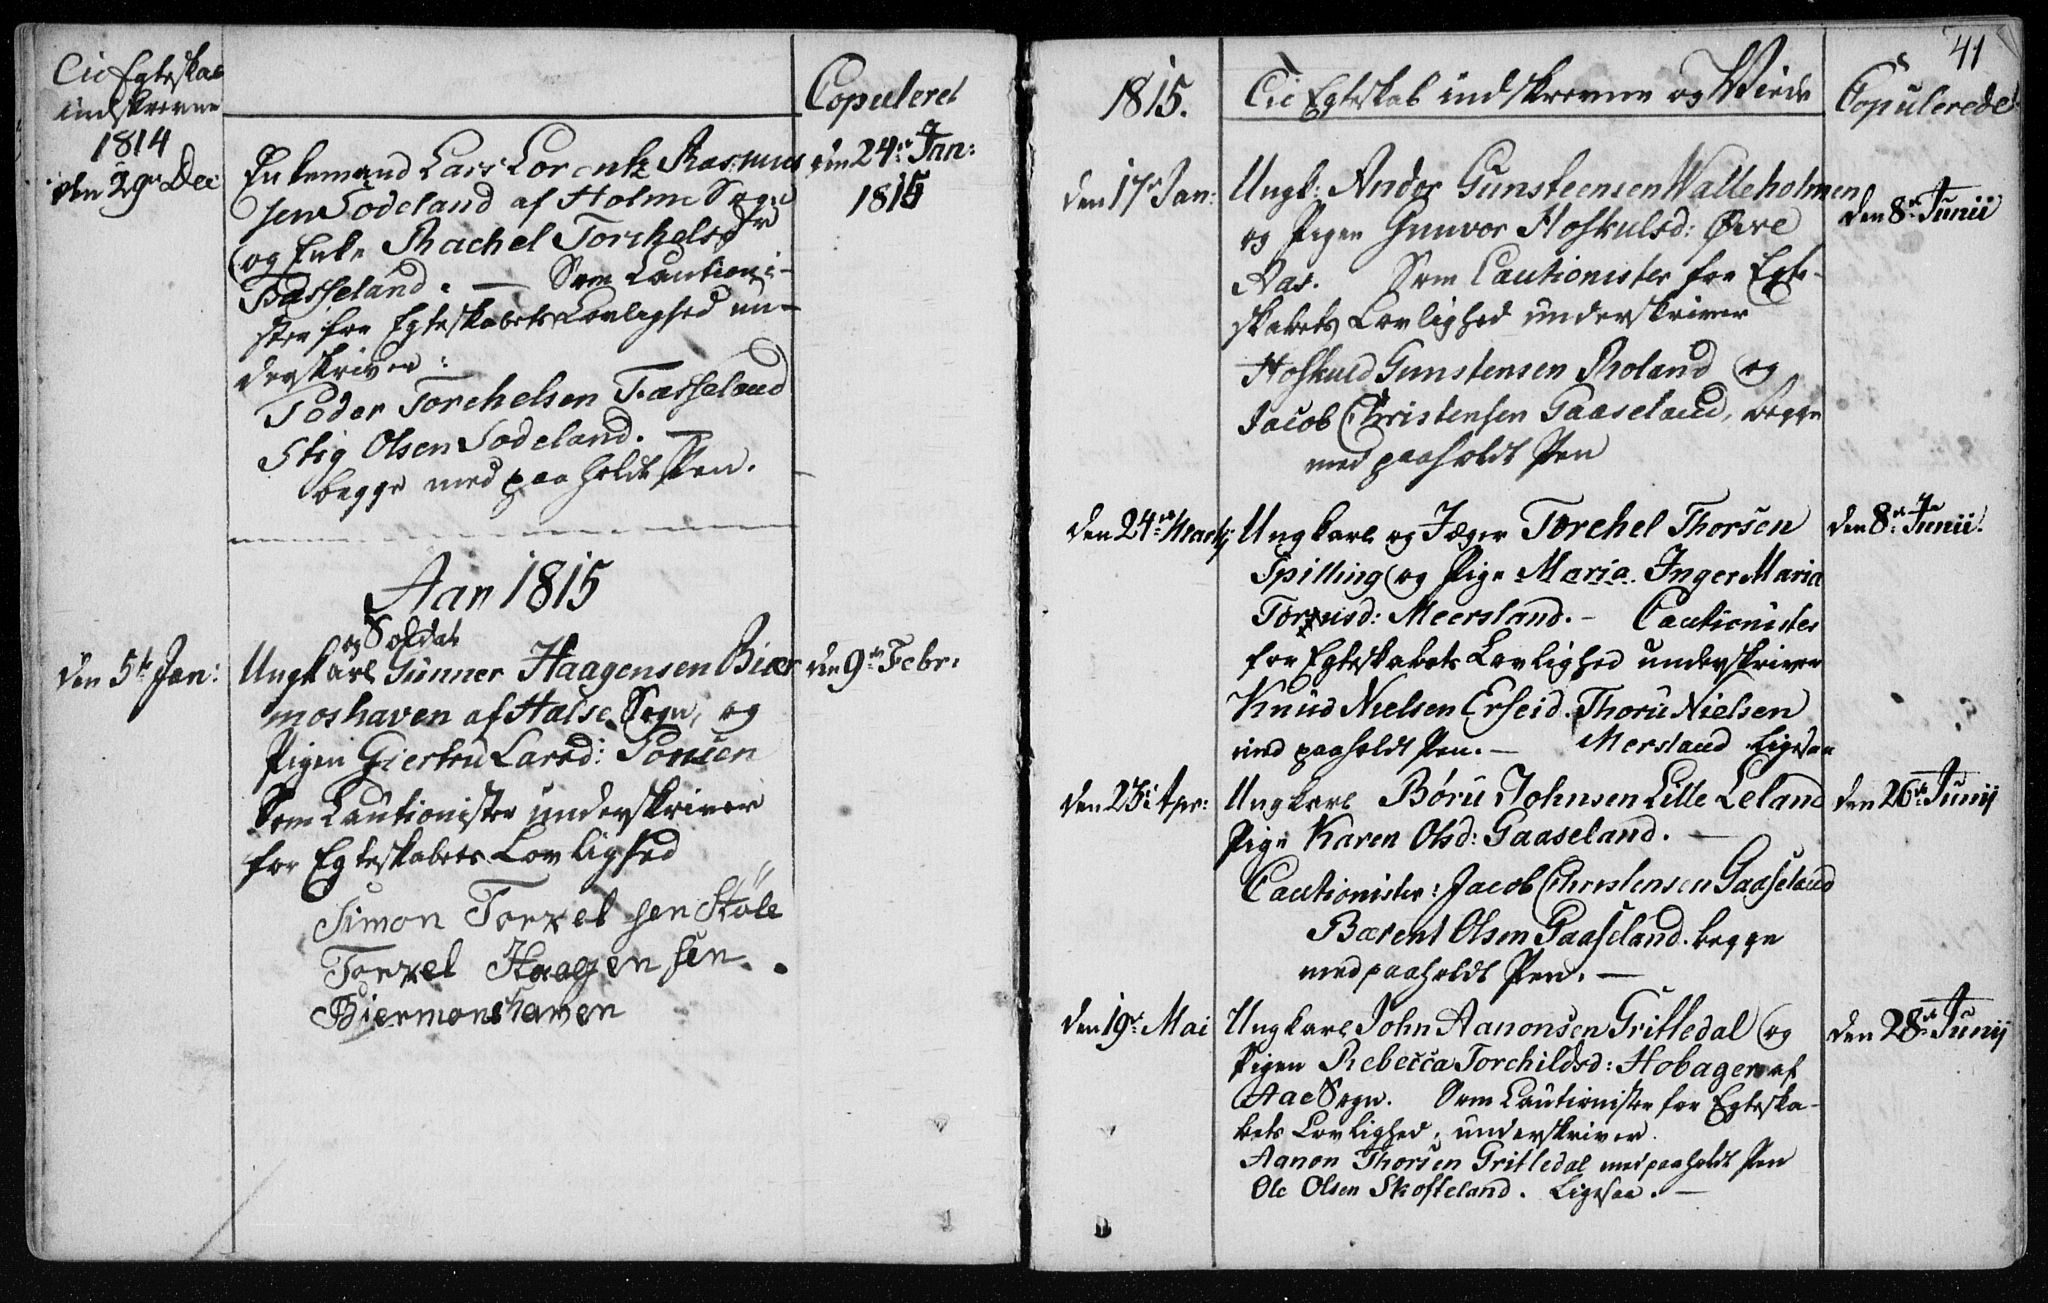 Til Egteskab
indskrevne
1814
den 29de Dec
Copuleret
Enkemand Lars Lorentz Rasmus
sen Sodeland af Holme Sogn
og Enke Rachel Torkelsdr
Tasseland. — Som Cautioni-
ster for Egteskabets Lovlighed un-
derskriver:
Peder Torchelsen Tasseland
Stig Olsen Sodeland. —
begge med paaholdt Pen.
den 24de Jan:
1815
Aan 1815
og Soldat
den 5te Jan:
Ungkarl Gunner Haagensen Biær
moshaven af Halse Sogn, og
Pigen Giertru Larsd:
Som Cautionister underskriver
for Egteskabets Lovlighed
Simon Torkel sen Støle
Torkel Haagen sen
Biermonshaven
den 9de Febr:
41
1815.
Til Egteskab indskrevne og Viede
Copulerede
den 17de Jan:
Ungk: Anders Gunsteensen Walleholmen
og Pigen Gunvor Hoskulsd: Øvre
Aas. Som Cautionister for Egte-
skabets Lovlighed underskriver
Hoskuld Gunstensen Roland og
Jacob Christensen Gaaseland, begge
med paaholdt Pen
den 8de Junii
den 24de Martij
Ungkarl og Jæger Torchel Thorsen
Spilling og Pige Maria Inger Maria
Meersland. — Cautionister
for Egteskabets Lovlighed underskriver
Knud Nielsen Erseid. Thoru Nielsen
med paaholdt Pen. — Mersland ligesaa
den 8de Junii.
den 23de Apr:
Ungkarl Børu Johnsen Lille Leland
Pige Karen Olsd: Gaaseland. —
Cautionister: Jacob Christensen Gaaseland
Bærent Olsen Gaaseland. begge
med paaholdt Pen. —
den 26de Junij
den 19de Mai
Ungkarl John Aanonsen Gritledal og
Pigen Rebecca Torchildsd: Hobagen af
Aae Sogn. Som Cautionister for Egteska-
bets Lovlighed, underskriver
Aanon Thorsen Gritledal med paaholdt Pen
Ole Olsen Skofteland. Ligesaa. —
den 28de Junij